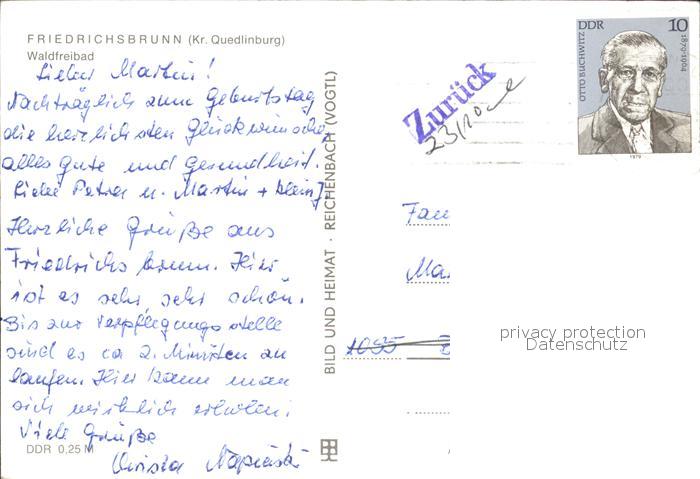 FRIEDRICHSBRUNN (Kr. Quedlinburg)
Waldfreibad
Lieber Martin!
Nachträglich zum Geburtstag
die herzlichsten Glückwünsche
alles gute und Gesundheit.
Liebe Petra u. Martin + klein
Herzliche Grüße aus
Friedrichsbrunn. Hier
ist es sehr sehr schön.
Bis zur Verpflegungsstelle
sind es ca 2. Minuten zu
laufen. Hier kann man
sich wirklich erholen.
Viele Grüße
Christa
DDR 0,25 M
BILD UND HEIMAT · REICHENBACH (VOGTL)
Zurück
23/10
DDR 10
OTTO BUCHWITZ 1879-1964
1979
Fam
Mar
1055
privacy protection
Datenschutz